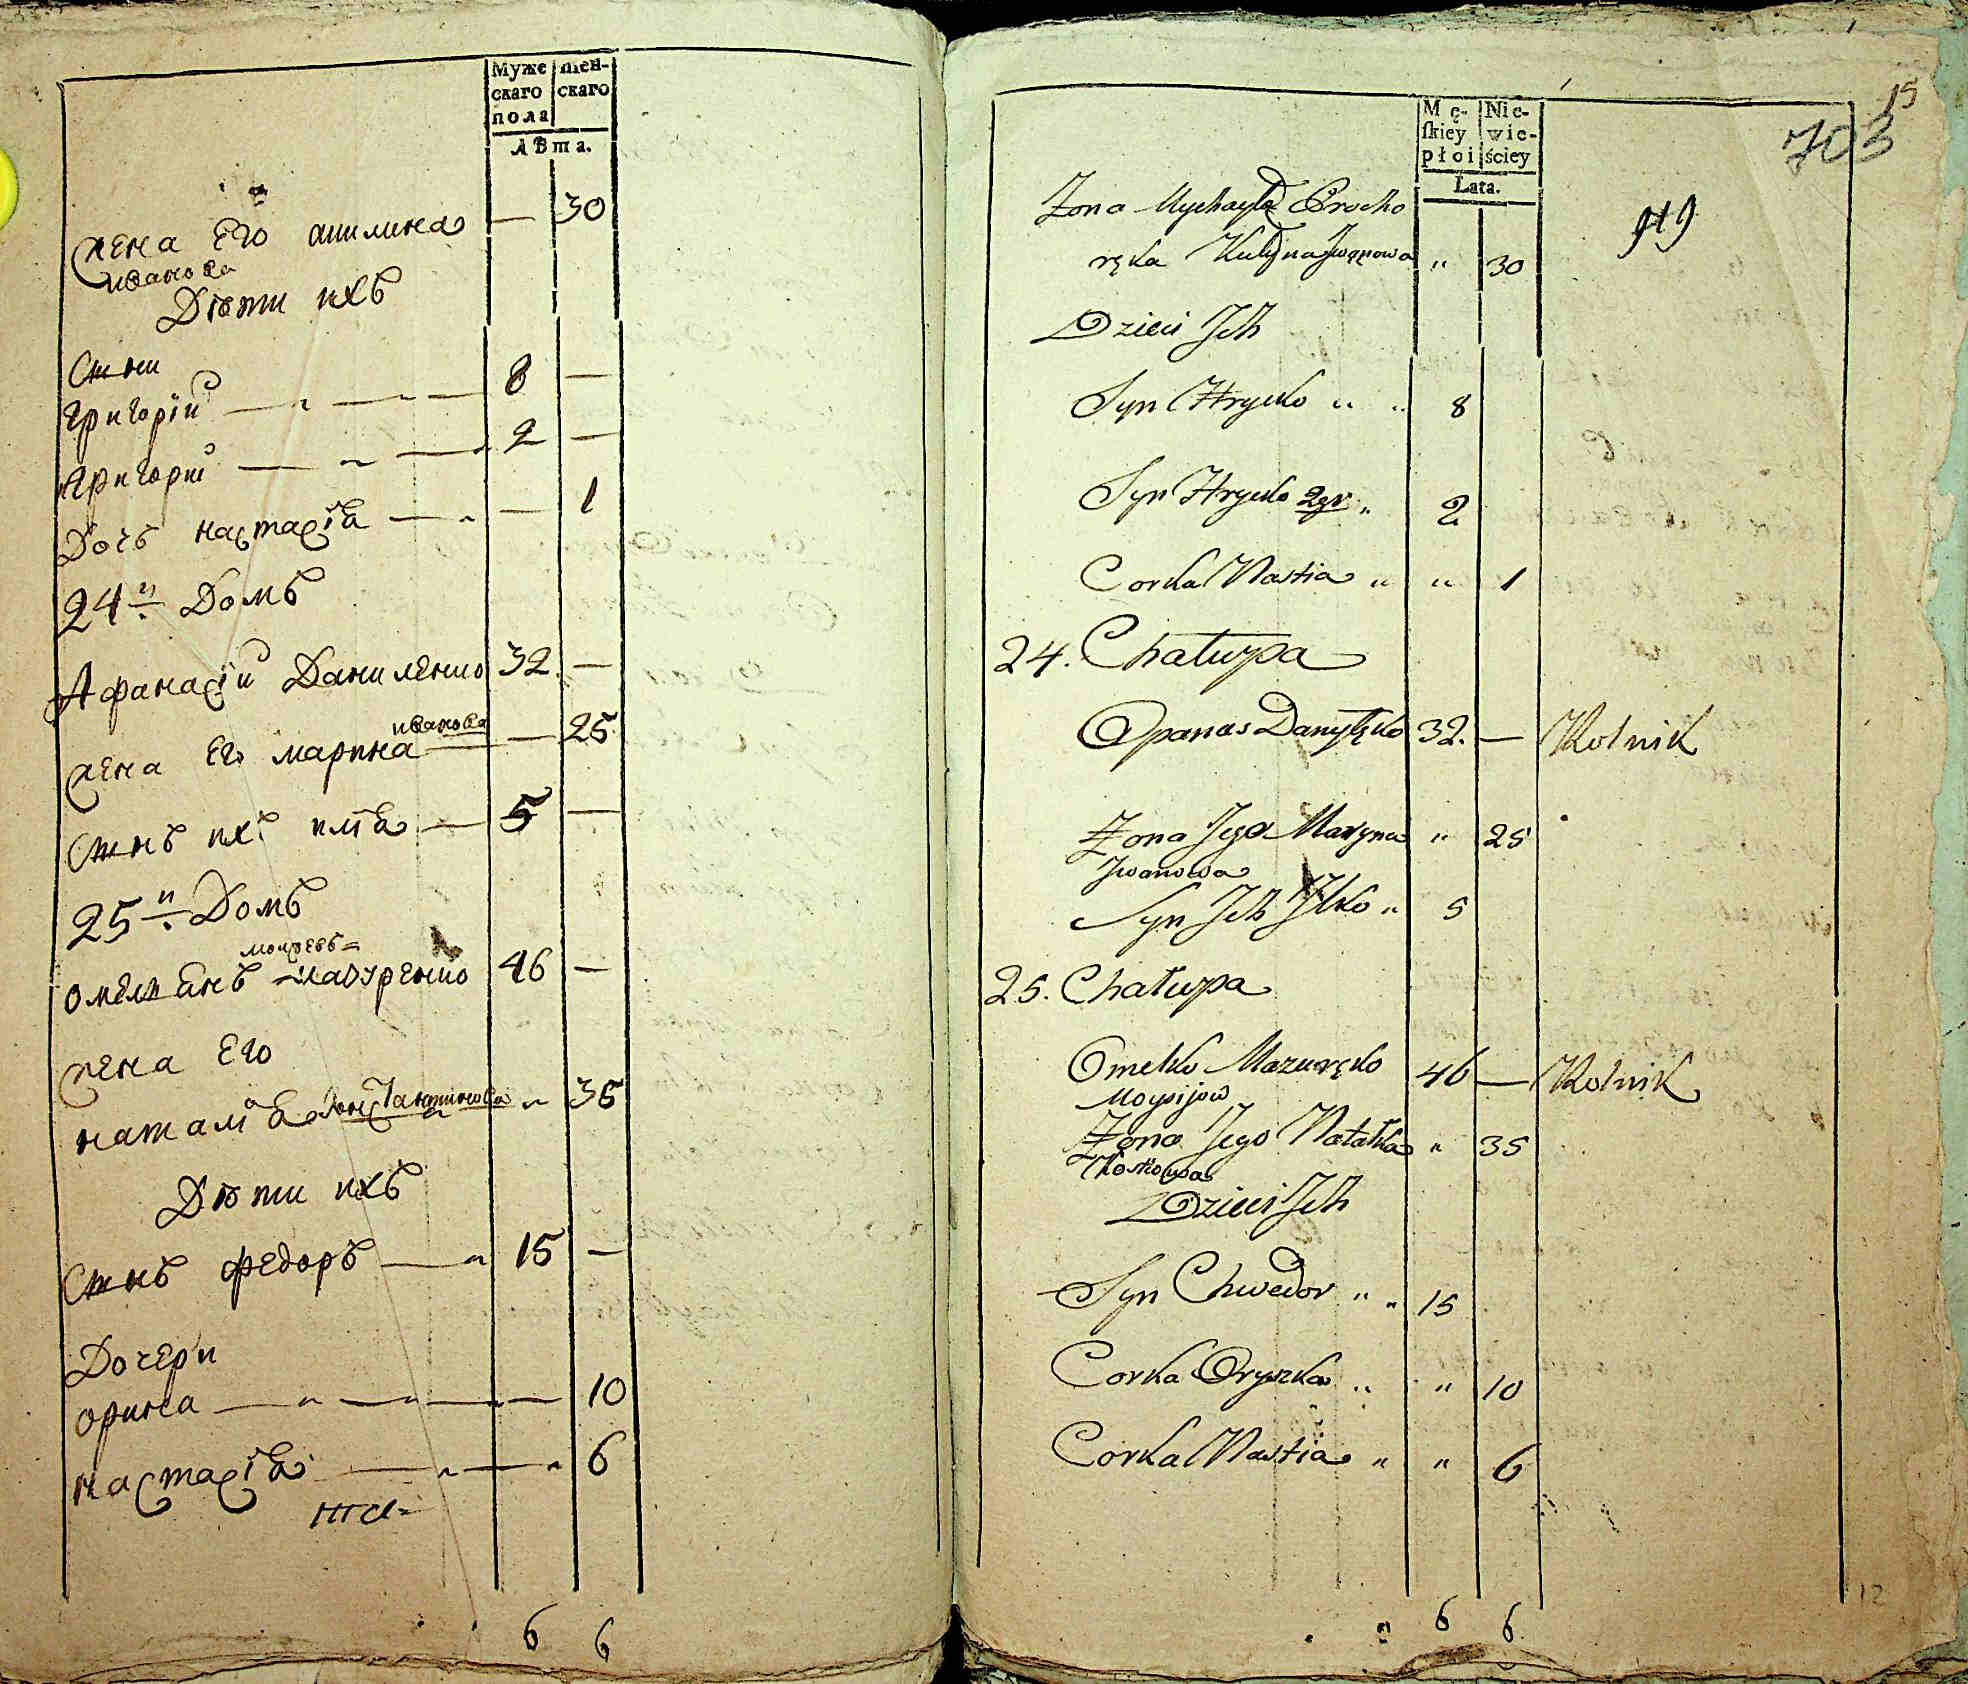 Муже
скаго
пола
Жен-
скаго
лѣта.
жена Его акилина — 30
иванова
Дѣти ихъ
Сыни
григорій — „ — „ — 8 —
григорій — „ — „ 2 —
Дочь настасія — „ — 1
24й Домъ
Афанасій Даниленко 32 —
иванова
жена Его марина — — 25
Сынъ ихъ илїа — 5 —
25й Домъ
моисеев=
омелянъ мазуренко 46 —
жена Его
наталїа Константинова „ 35
Дѣти ихъ
Сынъ федоръ — „ 15 —
Дочери
орина — „ — „ — „ — 10
настасїа — „ — „ 6
6 6
15
703
Mę-
skiey
płci
Nie-
wie-
ściey
Lata.
Zona Mychayła Procho
ręka Kulyna Jwanowa „ 30
Dzieci Jch
Syn Hrycko „ „ 8
Syn Hrycko 2gi „ 2
Corka Nastia „ „ 1
24. Chałupa
Opanas Danyłęko 32. — Rolnik
Zona Jego Maryna „ 25
Jwanowa
Syn Jch Jlko „ 5
25. Chałupa
Omelko Mazuręko 46 — Rolnik
Moysijow
Zona Jego Natałka „ 35
Kostiowa
Dzieci Jch
Syn Chwedor „ „ 15
Corka Oryszka „ „ 10
Corka Nastia „ „ 6
6 6
12